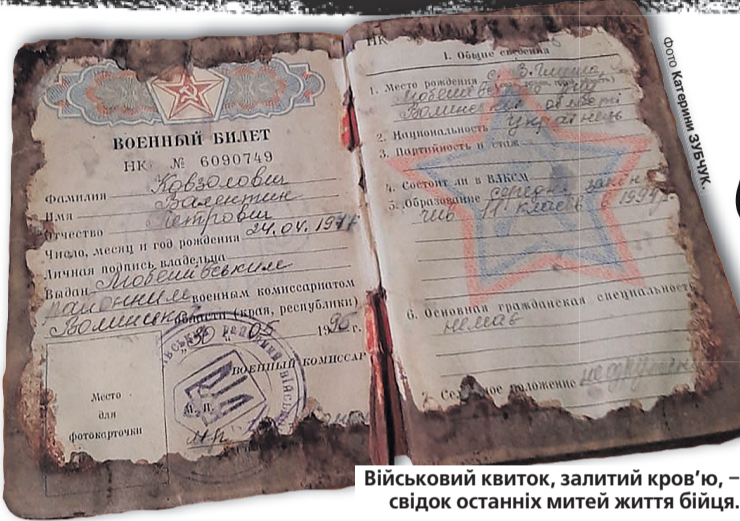 ВОЕННЫЙ БИЛЕТ
НК № 6090749
Фамилия Ковзолович
Имя Валентин
Отчество Петрович
Число, месяц и год рождения 24.04.197
Личная подпись владельца
Выдан Любешівським
районним военным комиссариатом
Волинської области (края, республики)
"30" 05 1995 г.
ВОЕННЫЙ КОМИССАР
Место
для
фотокарточки
М. П.
НК
1. Общие сведения
1. Место рождения с.
Волинської області
2. Национальность українець
3. Партийность и стаж
4. Состоит ли в ВЛКСМ
5. Образование середня, закін
чив 11 класів в 1994 р.
6. Основная гражданская специальность
немає
7. Семейное положение неодружен
Фото Катерини ЗУБЧУК.
Військовий квиток, залитий кров’ю, –
свідок останніх митей життя бійця.